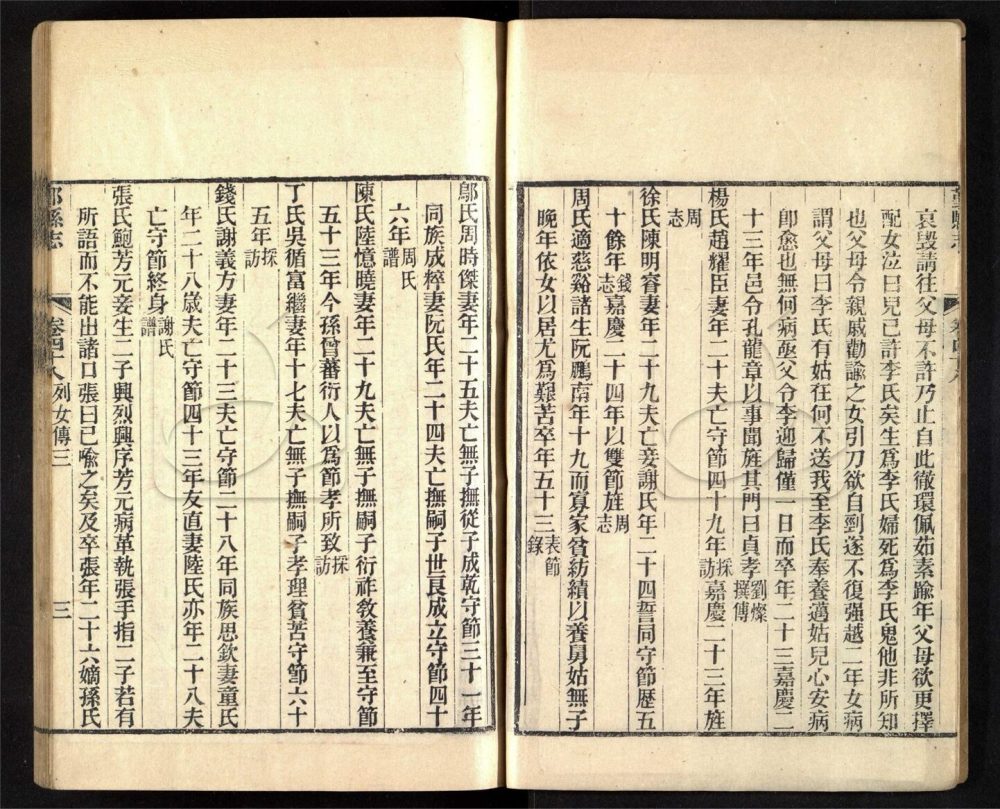 哀毀請往父母不許乃止自此徹環佩茹素踰年父母欲更擇
配女泣曰兒已許李氏矣生爲李氏婦死爲李氏鬼他非所知
也父母令親戚勸諭之女引刀欲自剄遂不復强越二年女病
謂父母曰李氏有姑在何不送我至李氏奉養邁姑兒心安病
卽愈也無何病亟父令李迎歸僅一日而卒年二十三嘉慶二
十三年邑令孔龍章以事聞旌其門曰貞孝劉燦撰傳
楊氏趙耀臣妻年二十夫亡守節四十九年採訪嘉慶二十三年旌
周志
徐氏陳明睿妻年二十九夫亡妾謝氏年二十四誓同守節歷五
十餘年錢志嘉慶二十四年以雙節旌周志
周氏適慈谿諸生阮鵬南年十九而寡家貧紡績以養舅姑無子
晚年依女以居尤爲艱苦卒年五十三表節錄
鄞縣志
卷四十八
鄔氏周時傑妻年二十五夫亡無子撫從子成乾守節三十一年
同族成粹妻阮氏年二十四夫亡撫嗣子世良成立守節四十
六年周氏譜
陳氏陸憶曉妻年二十九夫亡無子撫嗣子衍祚敎養兼至守節
五十三年今孫曾蕃衍人以爲節孝所致採訪
丁氏吳循富繼妻年十七夫亡無子撫嗣子孝理貧苦守節六十
五年採訪
錢氏謝義方妻年二十三夫亡守節二十八年同族思欽妻童氏
年二十八歲夫亡守節四十三年友直妻陸氏亦年二十八夫
亡守節終身謝氏譜
張氏鮑芳元妾生二子興烈興序芳元病革執張手指二子若有
所語而不能出諸口張曰已喻之矣及卒張年二十六嫡孫氏
鄞縣志
卷四十八 列女傳三
三